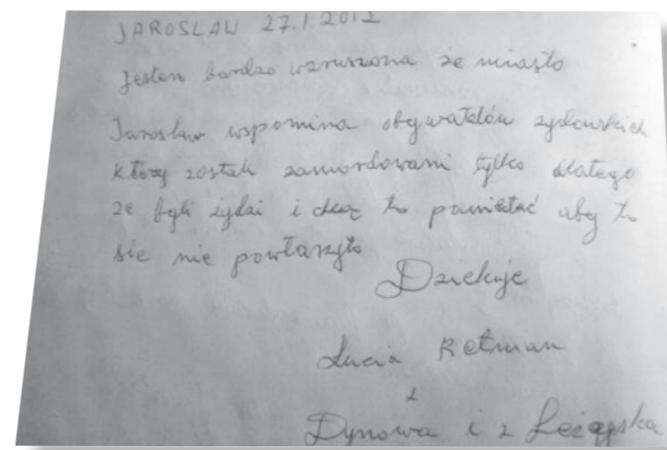 JAROSLAW 27.1.2012
Jestem bardzo wzruszona że miasto
Jarosław wspomina obywatelów żydowskich
którzy zostali zamordowani tylko dlatego
że byli żydzi i chcą to pamiętać aby to
sie nie powtarzyło
Dziekuje
Lucia Retman
z
Dynowa i z Leżajska